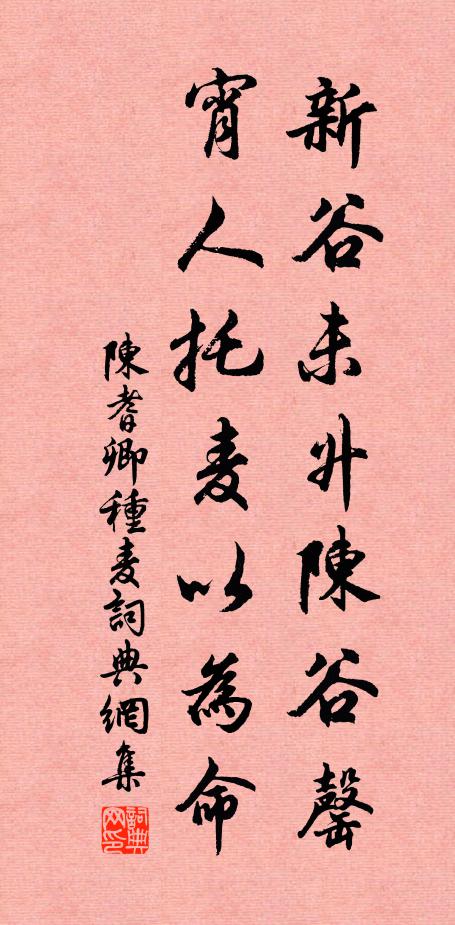 新谷未升陳谷罄
宵人托麦以為命
陳耆卿種麦詞典網集
詞典网印